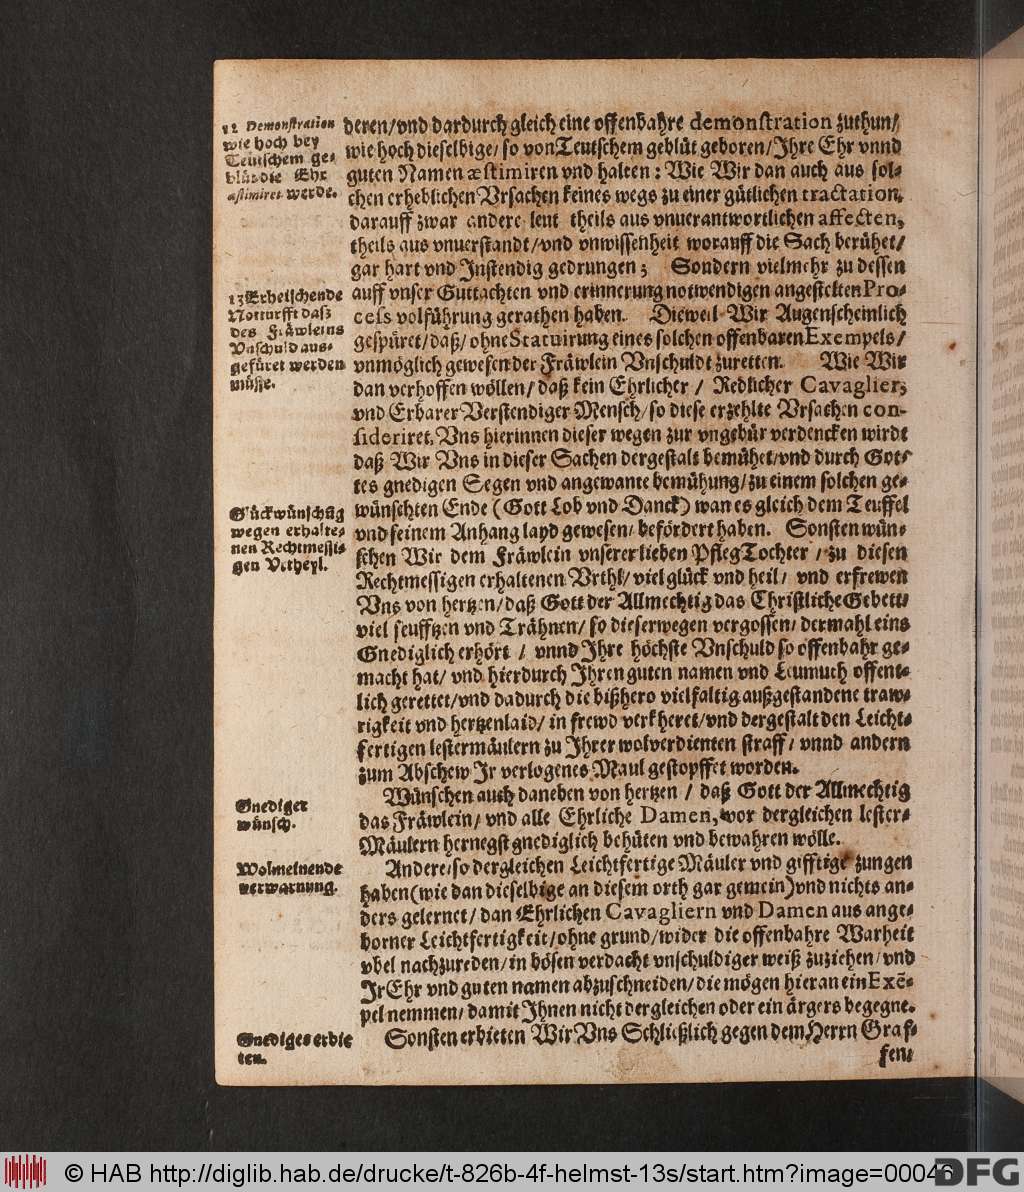 12 Demonstration
wie hoch bey
Teutschem ge-
blüt die Ehr
æstimiret werde.
deren/vnd dardurch gleich eine offenbahre demonstration zuthun/
wie hoch dieselbige/ so von Teutschem geblüt geboren/ Jhre Ehr vnnd
guten Namen æstimiren vnd halten: Wie Wir dan auch aus sol-
chen erheblichen Vrsachen keines wegs zu einer gütlichen tractation,
darauff zwar andere leut theils aus vnuerantwortlichen affecten,
theils aus vnuerstandt/vnd vnwissenheit worauff die Sach berühet/
gar hart vnd Jnstendig gedrungen; Sondern vielmehr zu dessen
13 Erheischende
Notturfft dasz
des Fräwleins
Vnschuld aus-
gefüret werden
müsse.
auff vnser Guttachten vnd erinnerung notwendigen angestelten Pro-
cess volführung gerathen haben. Dieweil Wir Augenscheinlich
gespüret/daß/ohne Statuirung eines solchen offenbaren Exempels/
vnmöglich gewesen der Fräwlein Vnschuldt zuretten. Wie Wir
dan verhoffen wöllen/ daß kein Ehrlicher / Redlicher Cavaglier;
vnd Erbarer Verstendiger Mensch/so diese erzehlte Vrsachen con-
sideriret, Vns hierinnen dieser wegen zur vngebür verdencken wirdt
daß Wir Vns in dieser Sachen dergestalt bemühet/vnd durch Got-
tes gnedigen Segen vnd angewante bemühung/zu einem solchen ge-
Glückwünschūg
wegen erhalte-
nen Rechtmessi-
gen Vrtheyl.
wünschten Ende (Gott Lob vnd Danck) wan es gleich dem Teuffel
vnd seinem Anhang layd gewesen/ befördert haben. Sonsten wün-
schen Wir dem Fräwlein vnserer lieben PflegTochter / zu diesen
Rechtmessigen erhaltenen Vrthl/ viel glück vnd heil/ vnd erfrewen
Vns von hertzen/ daß Gott der Allmechtig das Christliche Gebett/
viel seufftzen vnd Trähnen/ so dieserwegen vergossen/ dermahl eins
Gnediglich erhört / vnnd Jhre höchste Vnschuld so offenbahr ge-
macht hat/ vnd hierdurch Jhren guten namen vnd Leumuth offent-
lich gerettet/vnd dadurch die bißhero vielfaltig außgestandene traw-
rigkeit vnd hertzenlaid/ in frewd verkheret/vnd dergestalt den Leicht-
fertigen lestermäulern zu Jhrer wolverdienten straff/ vnnd andern
zum Abschew Jr verlogenes Maul gestopffet worden.
Gnediger
wünsch.
Wünschen auch daneben von hertzen / daß Gott der Allmechtig
das Fräwlein/ vnd alle Ehrliche Damen, vor dergleichen lester-
Mäulern hernegst gnediglich behüten vnd bewahren wölle.
Wolmeinende
verwarnung.
Andere/so dergleichen Leichtfertige Mäuler vnd gifftige zungen
haben (wie dan dieselbige an diesem orth gar gemein) vnd nichts an-
ders gelernet/ dan Ehrlichen Cavagliern vnd Damen aus ange-
borner Leichtfertigkeit/ohne grund/wider die offenbahre Warheit
vbel nachzureden/in bösen verdacht vnschuldiger weiß zuziehen/vnd
Jr Ehr vnd guten namen abzuschneiden/die mögen hieran ein Exē-
pel nemmen/ damit Jhnen nicht dergleichen oder ein ärgers begegne.
Gnediges erbie
ten.
Sonsten erbieten Wir Vns Schließlich gegen dem Herrn Graf-
fen/
© HAB http://diglib.hab.de/drucke/t-826b-4f-helmst-13s/start.htm?image=00046
DFG